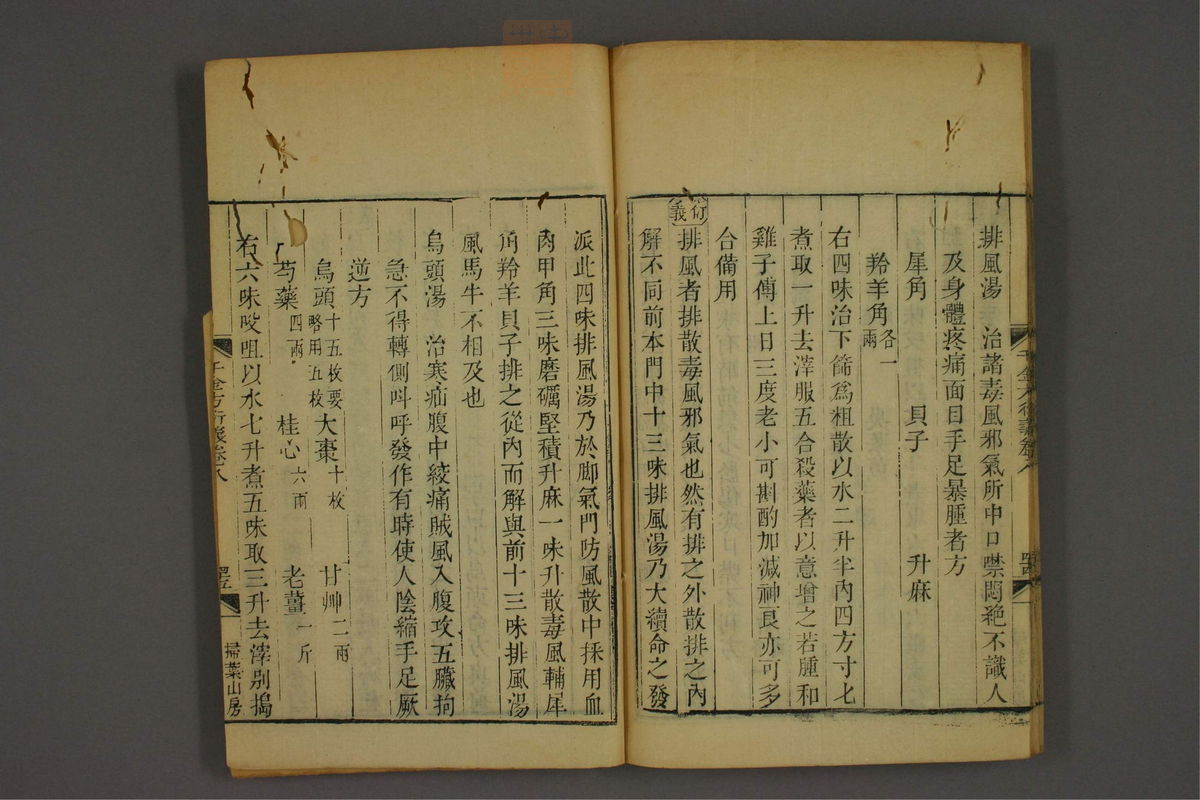 排風湯 治諸毒風邪氣所中口噤悶絶不識人
及身體疼痛面目手足暴腫者方
犀角 貝子 升麻
羚羊角各一兩
右四味治下篩爲粗散以水二升半內四方寸匕
煮取一升去滓服五合殺藥者以意增之若腫和
雞子傅上日三度老小可斟酌加減神良亦可多
合備用
衍義
排風者排散毒風邪氣也然有排之外散排之內
解不同前本門中十三味排風湯乃大續命之發
派此四味排風湯乃於脚氣門防風散中採用血
肉甲角三味磨礪堅積升麻一味升散毒風輔犀
角羚羊貝子排之從內而解與前十三味排風湯
風馬牛不相及也
烏頭湯 治寒疝腹中綾痛賊風入腹攻五臟拘
急不得轉側呌呼發作有時使人陰縮手足厥
逆方
烏頭十五枚要略用五枚 大棗十枚 甘艸二兩
芍藥四兩 桂心六兩 老薑一斤
右六味㕮咀以水七升煮五味取三升去滓别搗
千金方衍義卷八
掃葉山房